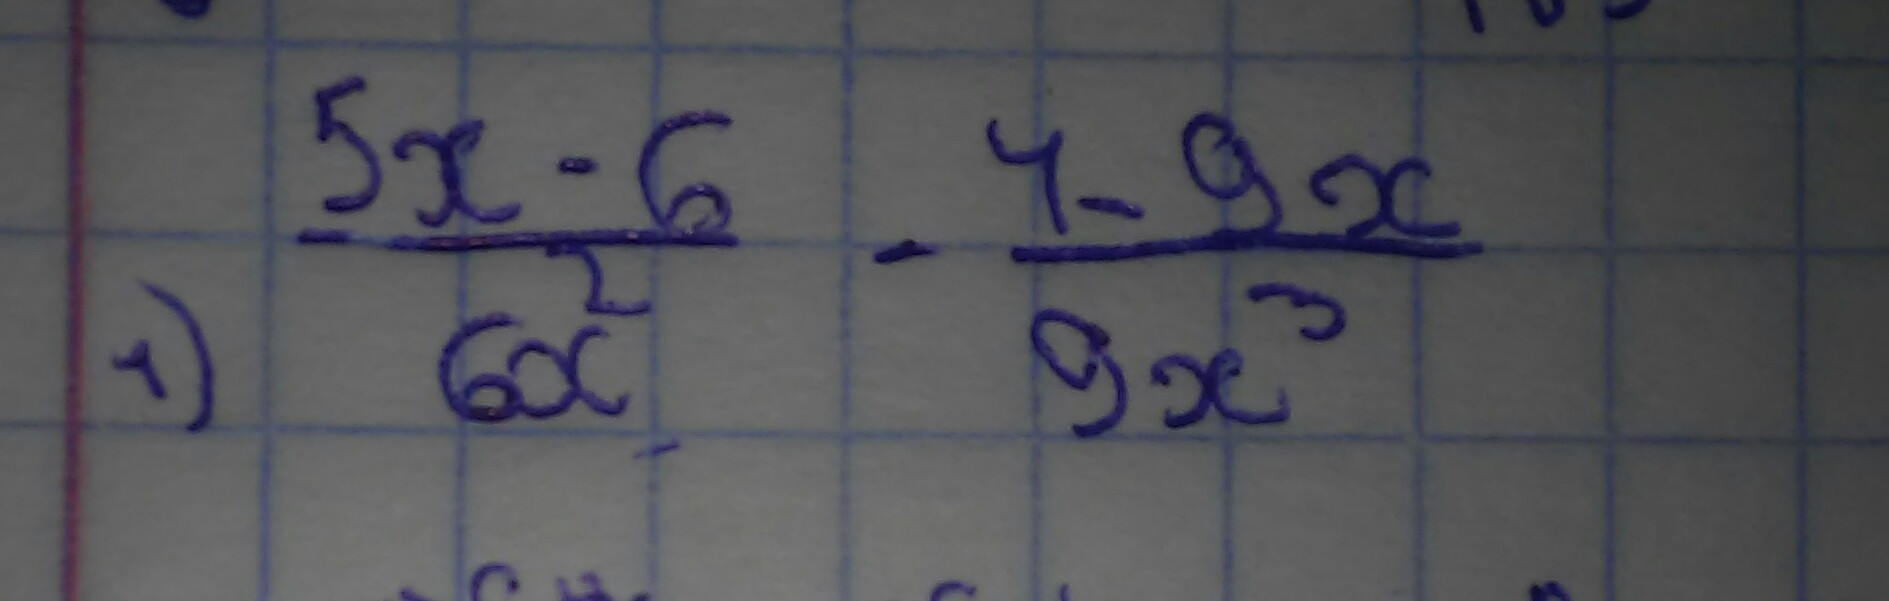 4) \frac{5x - 6}{6x^2} - \frac{4 - 9x}{9x^3}